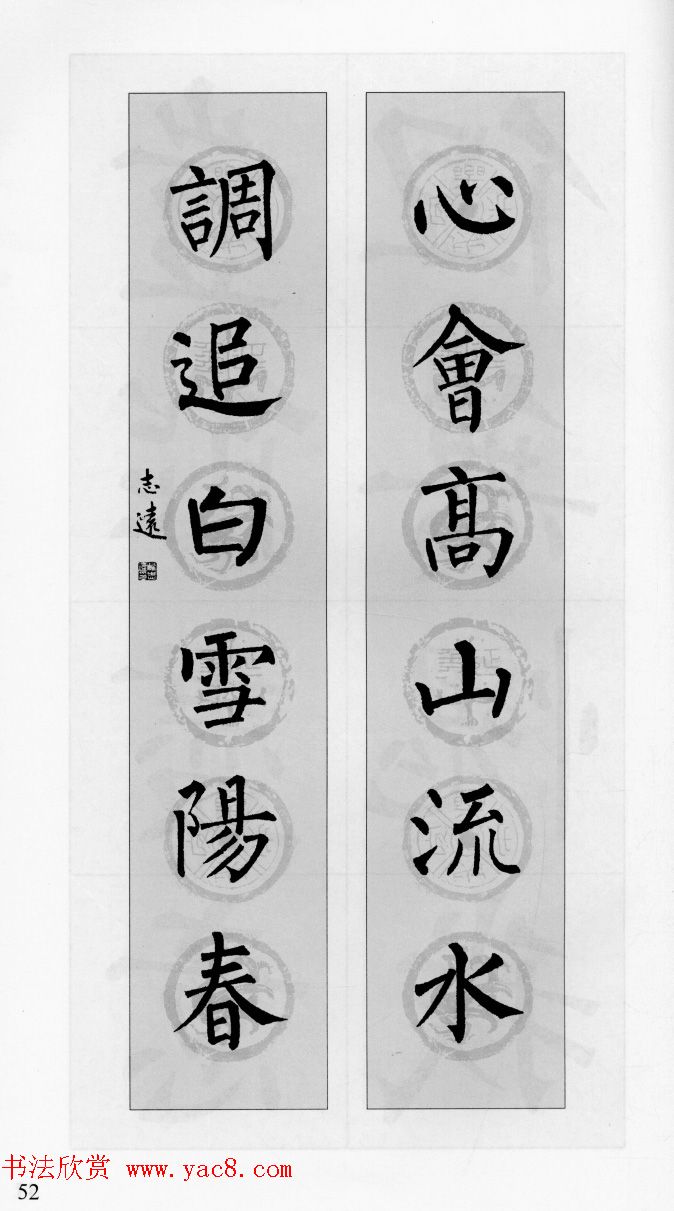 心會髙山流水
調追白雪陽春
志遠
书法欣赏 www.yac8.com
52